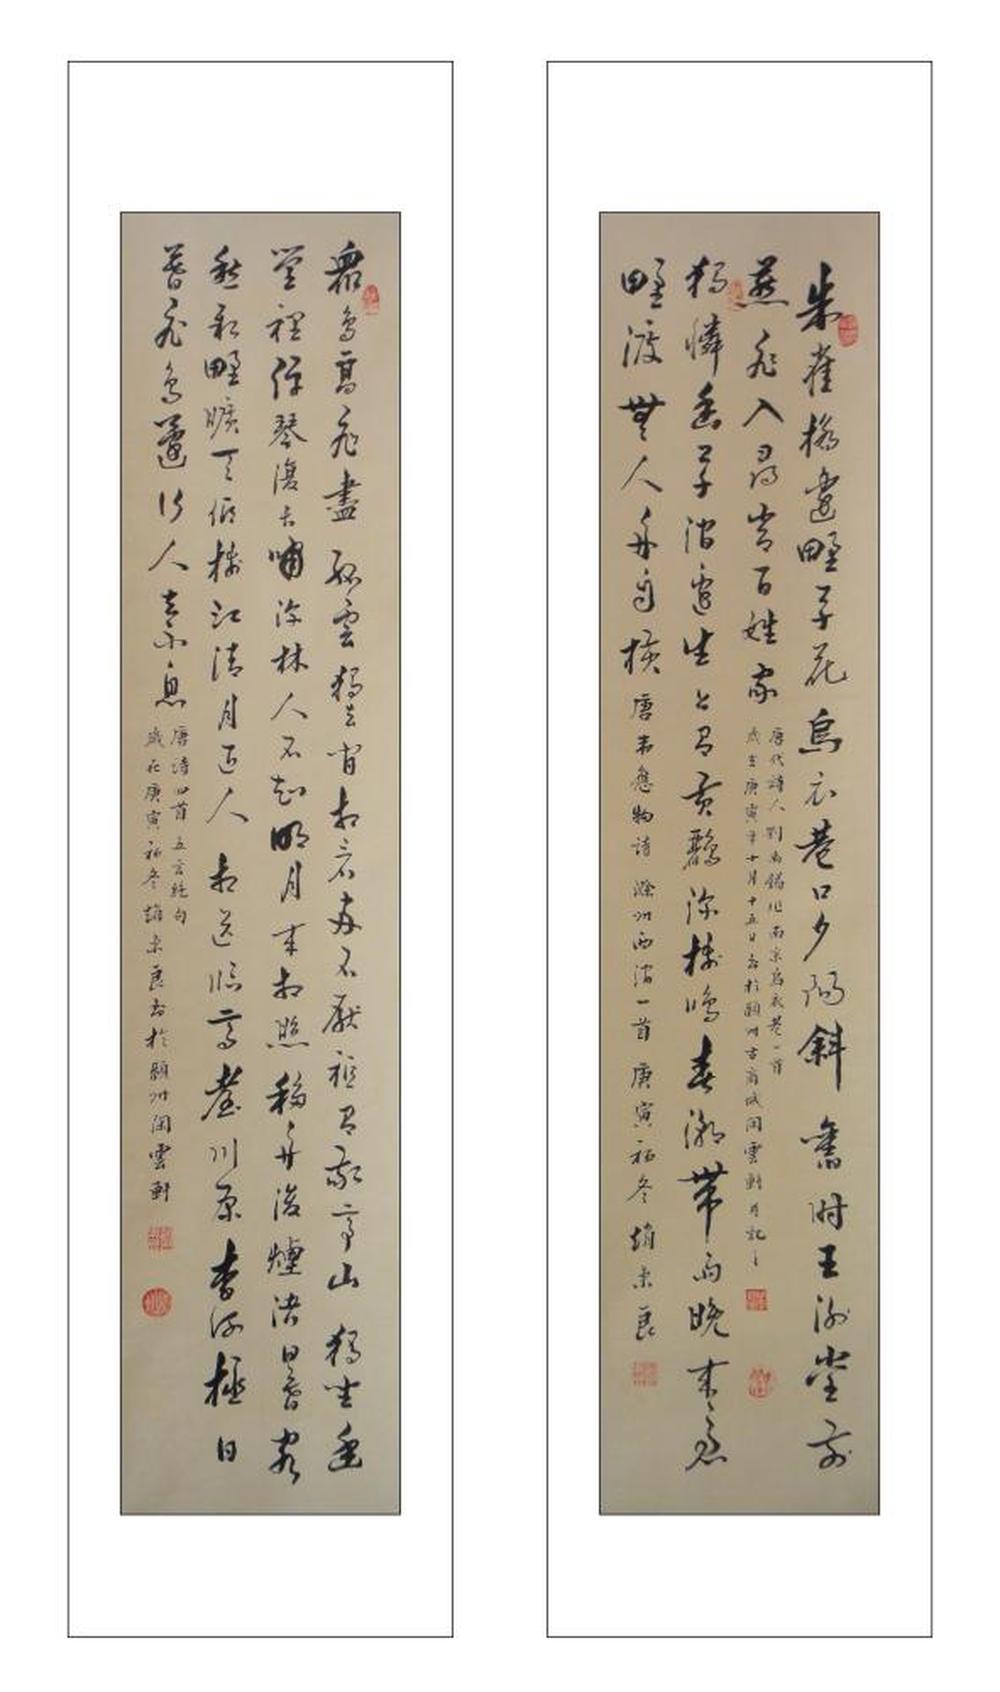 朱雀橋邊野草花烏衣巷口夕陽斜舊時王謝堂前
燕飛入尋常百姓家
唐代詩人劉禹錫作南京烏衣巷一首
歲在庚寅年十月十五日書於潁州古商城閑雲軒記之
獨憐幽草澗邊生上有黃鸝深樹鳴春潮帶雨晚來急
野渡無人舟自橫 唐韋應物詩 滁州西澗一首 庚寅初冬 趙東良
眾鳥高飛盡孤雲獨去閒相看兩不厭祗有敬亭山獨坐幽
篁裡彈琴復長嘯深林人不知明月來相照移舟泊煙渚日暮客
愁新野曠天低樹江清月近人相送臨高臺川原杳何極日
暮飛鳥還行人去不息
唐詩四首五言絕句
歲在庚寅初冬趙東良書於潁州閑雲軒